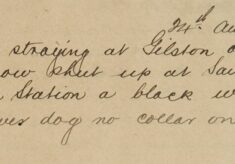 24th Au
straying at Gilston
ow shut up at Sa
Station a black
dog no collar on